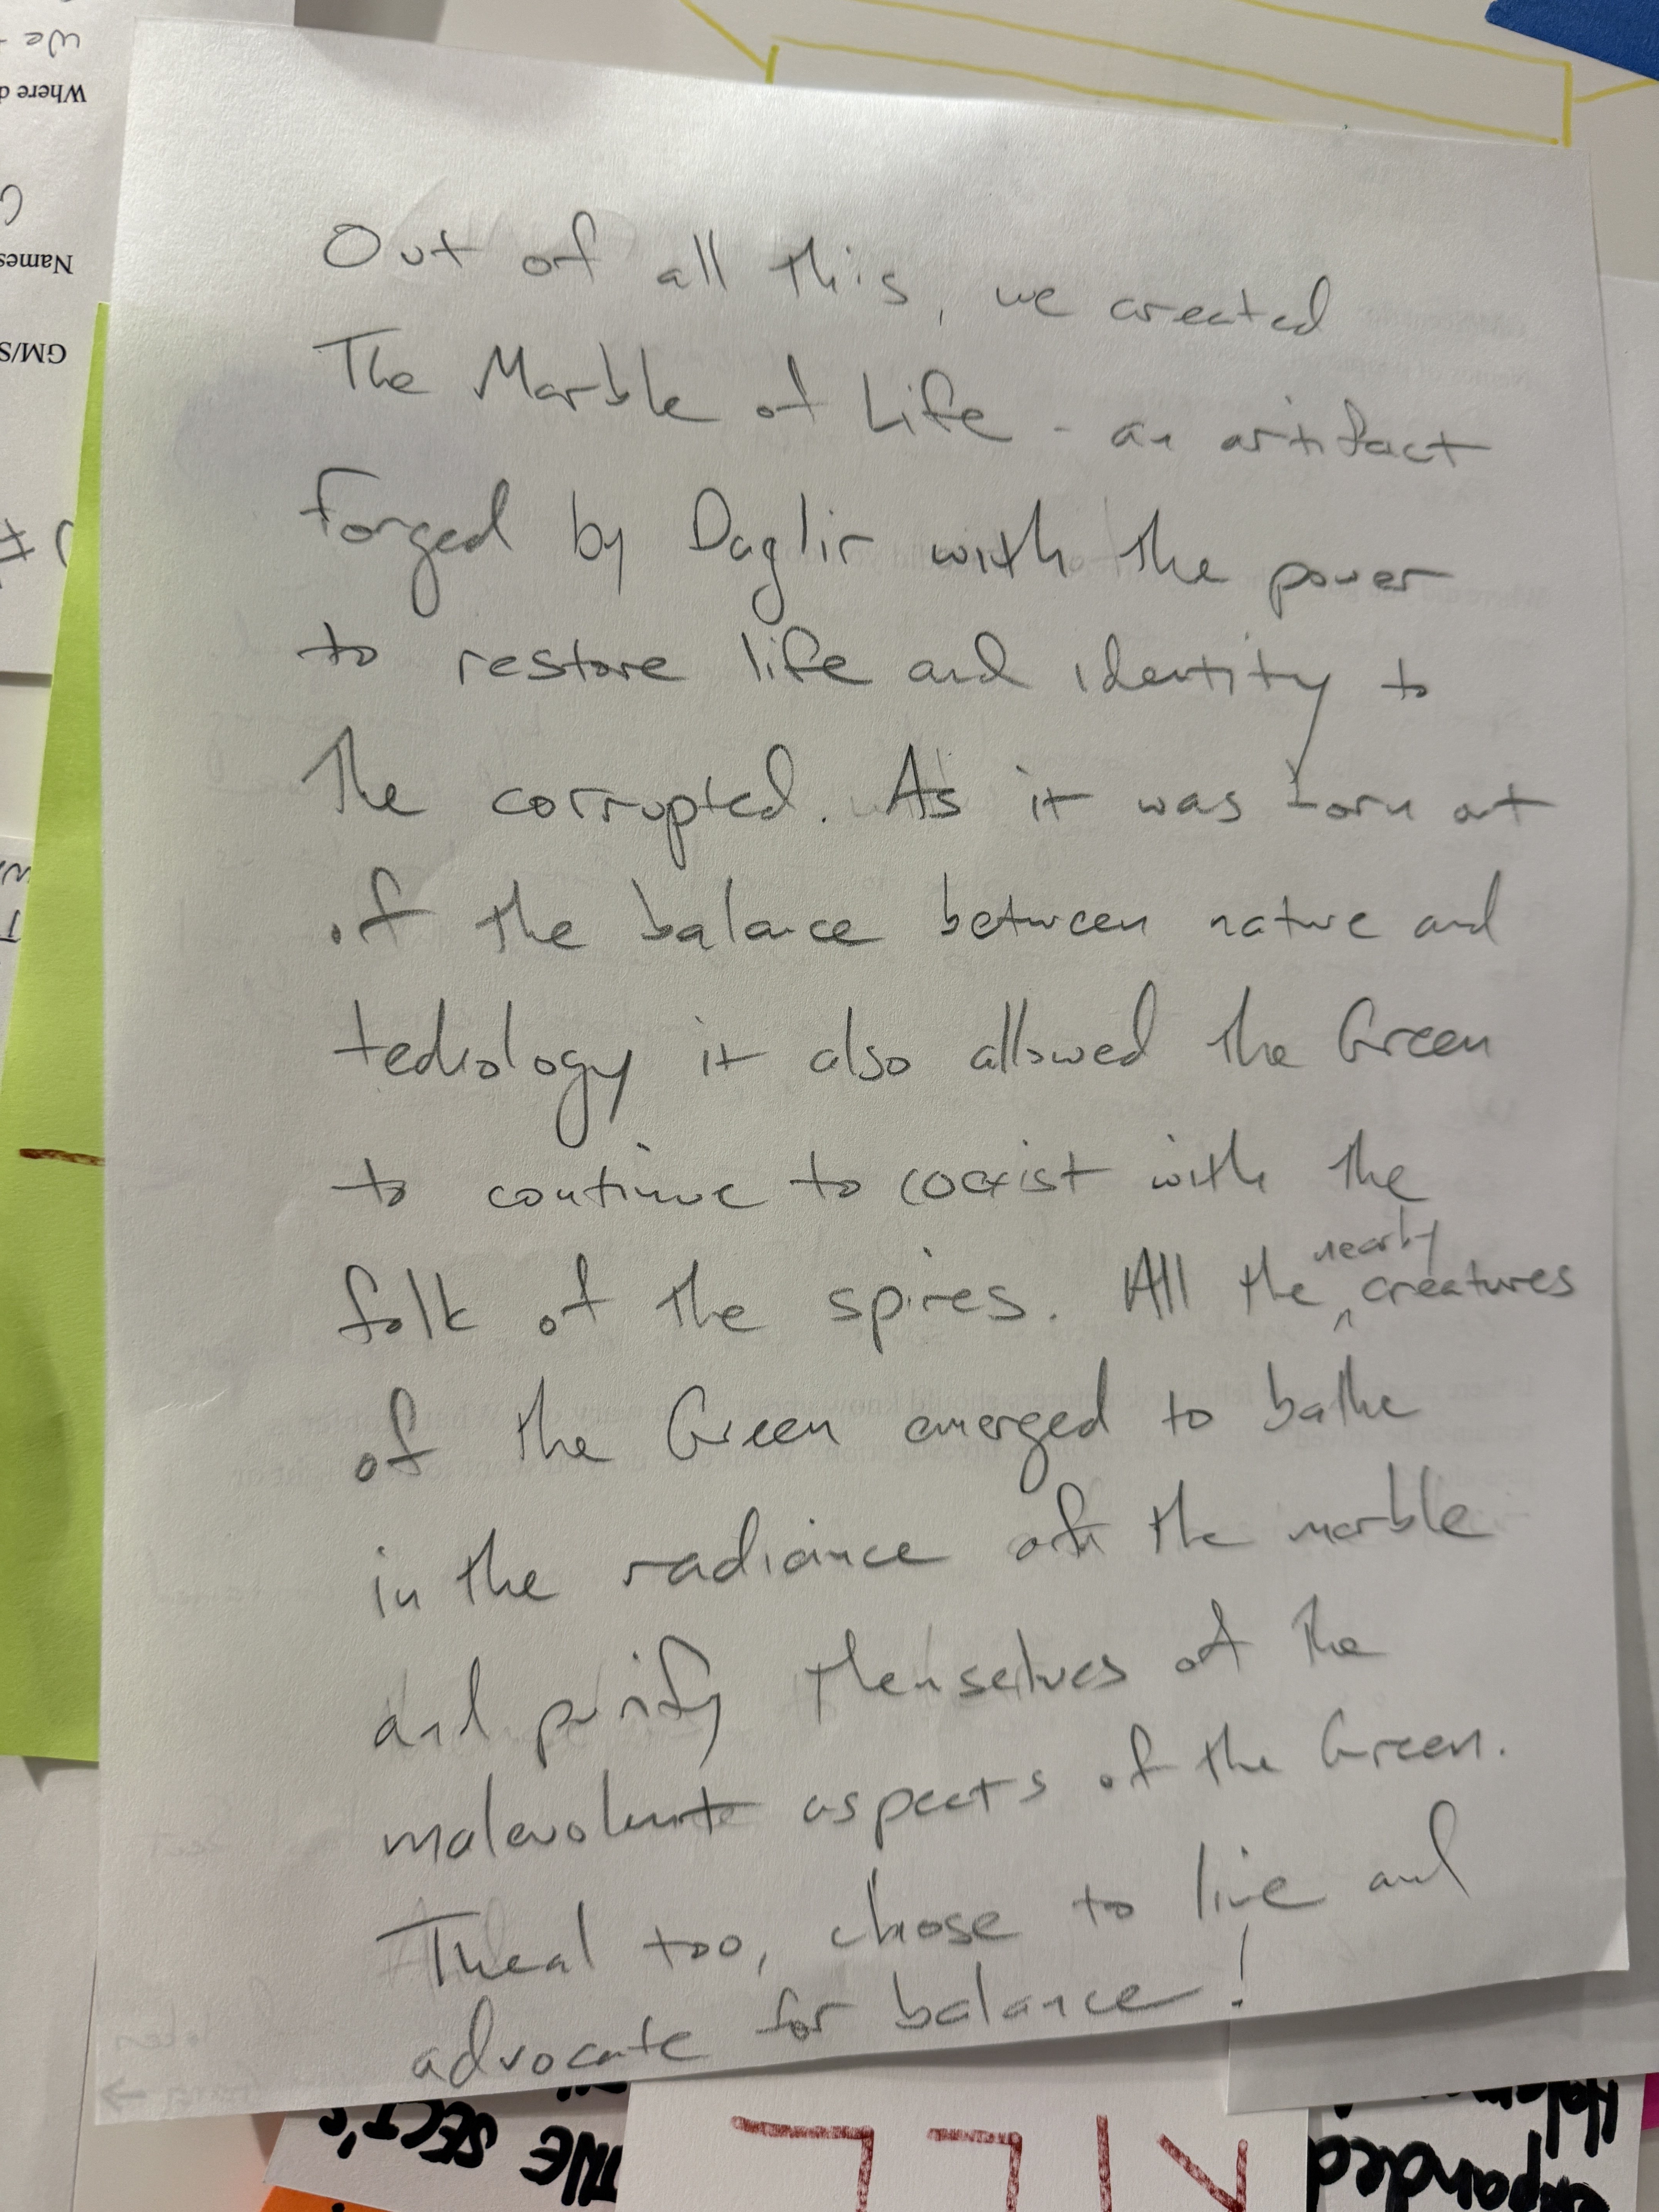 Out of all this, we created
The Marble of Life - an artifact
forged by Daglir with the power
to restore life and identity to
the corrupted. As it was born out
of the balance between nature and
technology it also allowed the Green
to continue to coexist with the
folk of the spires. All the nearby creatures
of the Green emerged to bathe
in the radiance of the marble
and purify themselves of the
malevolent aspects of the Green.
Theal too, chose to live and
advocate for balance!
we
Where d
Names
GM/S
THE SECT'S
expanded